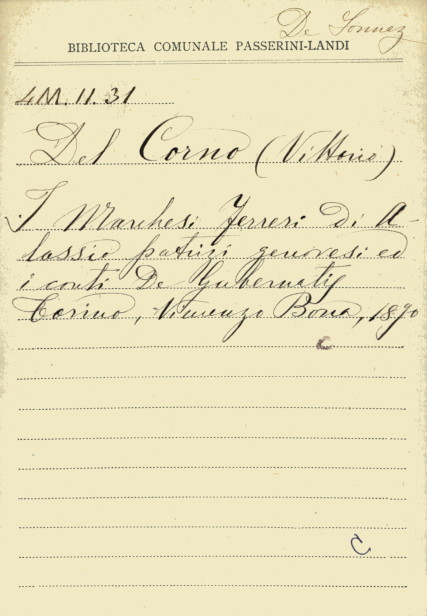 De Sonnaz
BIBLIOTECA COMUNALE PASSERINI-LANDI
4M.11.31
Del Corno (Vittorio)
I Marchesi Ferreri di A-
lassio patrizi genovesi ed
i conti De Gubernatis
Torino, Vincenzo Bona, 1890
C
C